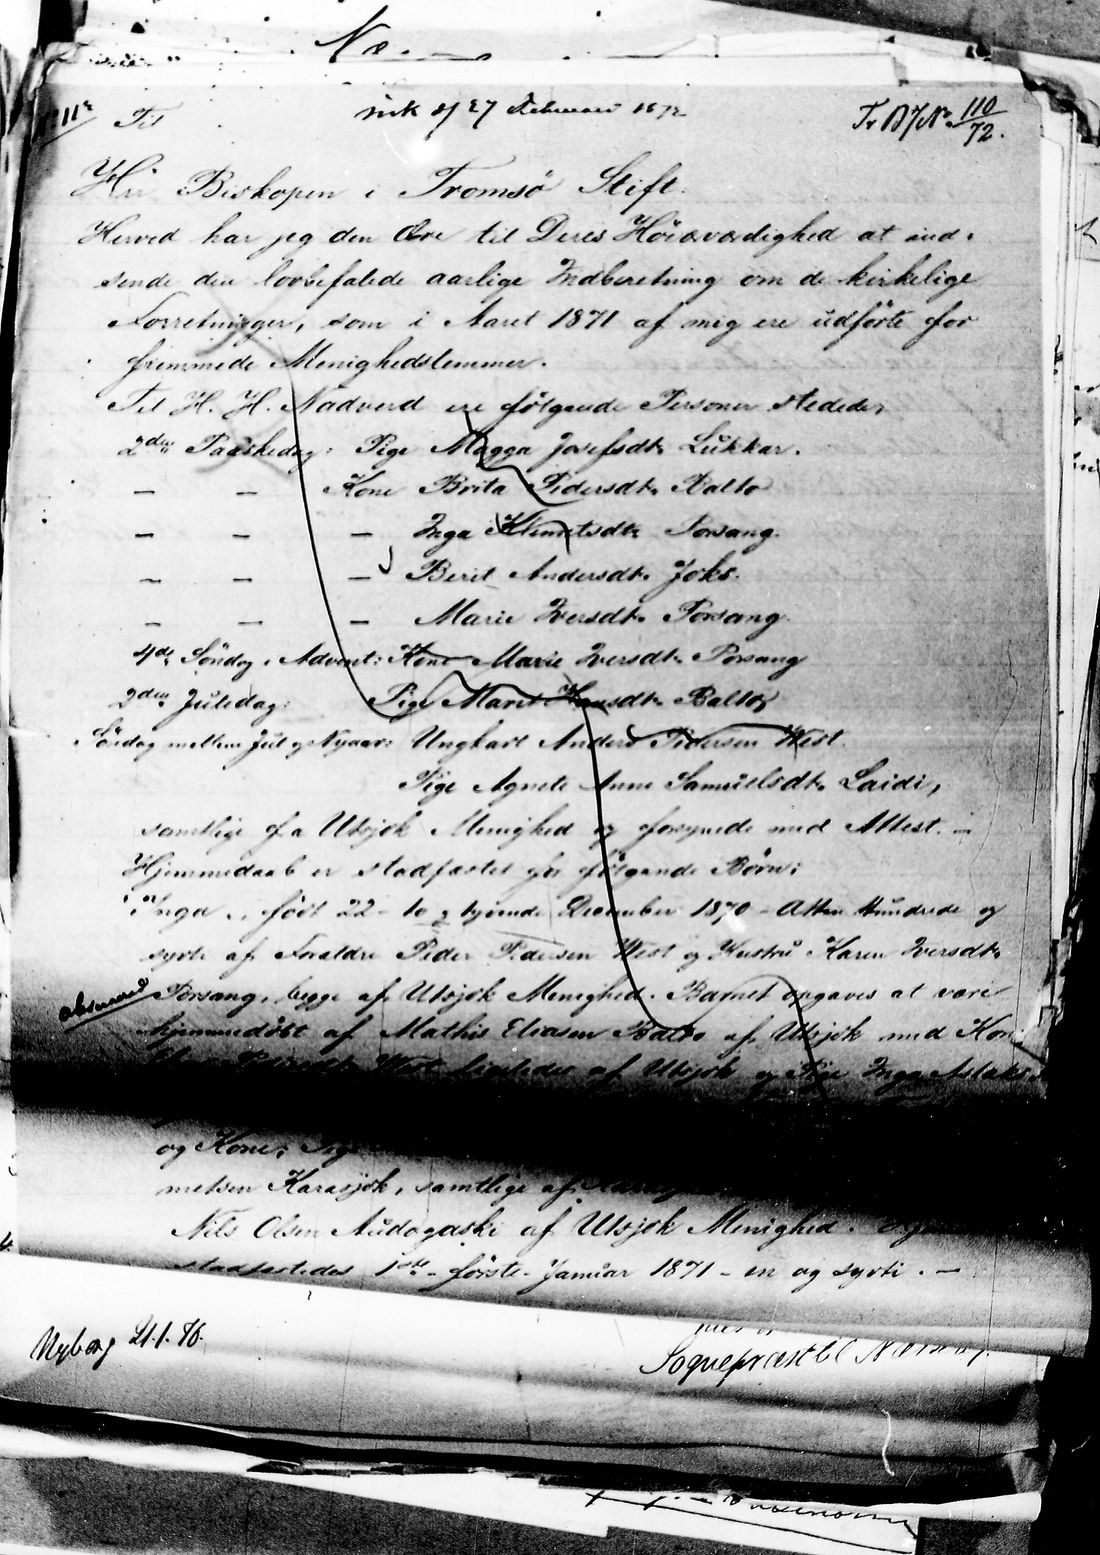 Næ
Til
27 Februar 1872
Tr B J No 110/72.
Hr. Biskopen i Tromsø Stift.
Herved har jeg den Ære til Deres Höiærværdighed at ind-
sende den lovbefalede aarlige Indberetning om de kirkelige
Forretninger, som i Aaret 1871 af mig ere udførte for
fremmede Menighedslemmer.
Til H. H. Nadverd ere følgende Personer stedede,
2den Paaskedag: Pige Magga Josefsdtr Lukkar.
— — Kone Brita Pedersdtr Balto
— — — Inga Klemetsdtr Porsang.
— — — Berit Andersdtr Joks.
— — — Marie Iversdtr Porsang.
4de Söndag i Advent: Kone Marie Iversdtr Porsang
2den Juledag: Pige Marit Hansdtr Balto,
Söndag mellem Jul og Nyaar: Ungkarl Anders Pedersen West.
Pige Agnete Anne Samuelsdtr Laidi,
samtlige fra Utsjok Menighed og forsynede med Attest. —
Hjemmedaab er stadfæstet for følgende Børn:
Inga, født 22 - to og tyvende December 1870 - Atten Hundrede og
sytti af Forældre Peder Pedersen West og Hustru Karen Iversdtr
Porsang, begge af Utsjok Menighed. Barnet opgaves at være
hjemmedøbt af Mathis Eliasen Balto af Utsjok med Kone
West ligeledes af Utsjok og Pige Inga Aslaks
og Kone, Pige
metsen Karasjok, samtlige af
Nils Olsen Audogaski af Utsjok Menighed.
stadfæstedes 1ste - første - Januar 1871 - en og sytti. —
Nyborg 21.1.76.
Sognepræst til Næsseby.